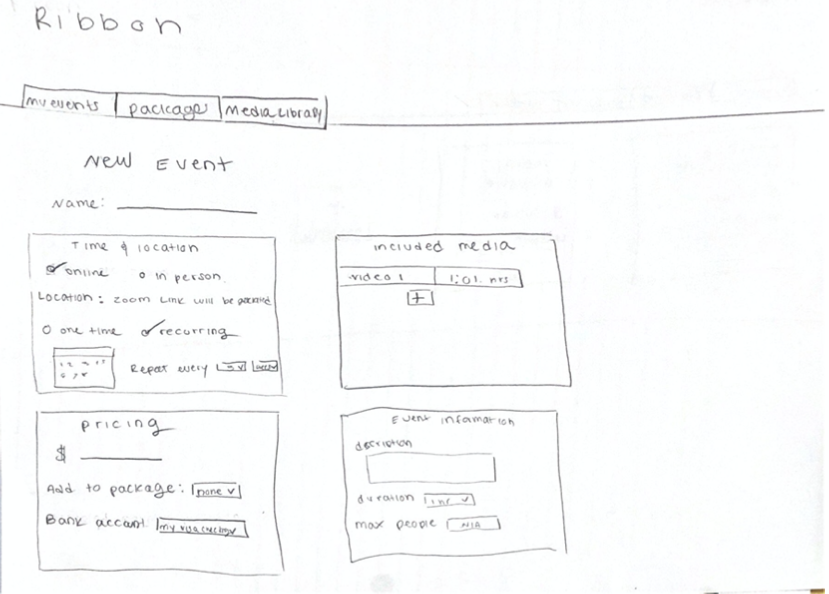 Ribbon
my events package Media Library
New Event
Name:
Time & location
online in person
Location: Zoom Link will be
one time recurring
Repeat every
included media
video 1 1:01 hrs
+
pricing
$
Add to package: none
Bank account my visa
Event information
duration 1 hr
max people N/A